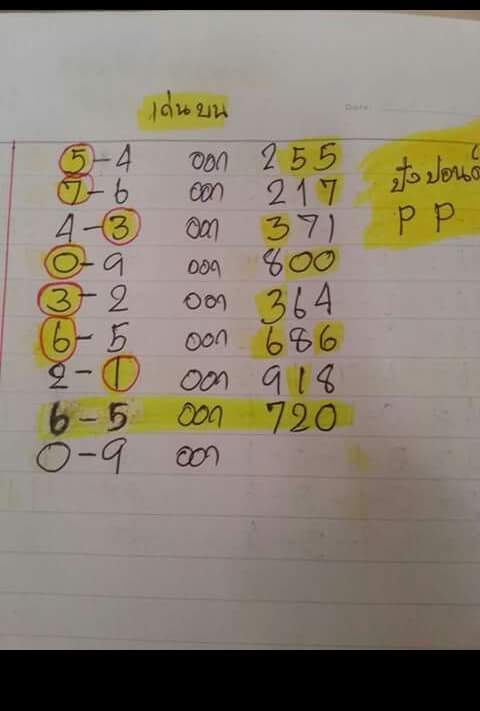 เด่นบน
Date
5-4 ออก 255
7-6 ออก 217
4-3 ออก 371
0-9 ออก 800
3-2 ออก 364
6-5 ออก 686
2-1 ออก 918
6-5 ออก 720
0-9 ออก
ปังปอนด์
P P